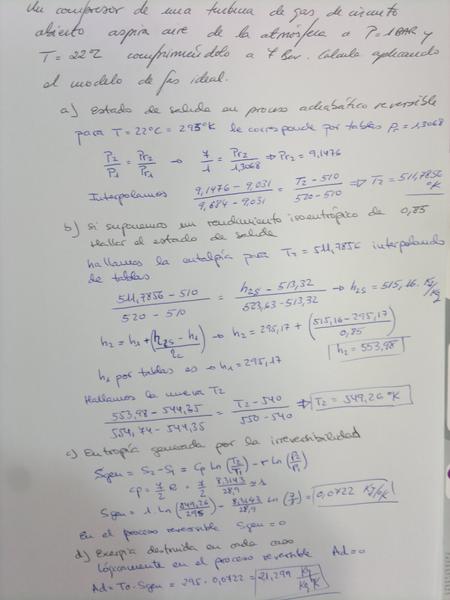 Un compresor de una turbina de gas de circuito
abierto aspira aire de la atmósfera a P=1BAR y
T=22ºC comprimiéndolo a 7 Bar. Calcula aplicando
el modelo de gas ideal.
a) Estado de salida en proceso adiabático reversible
para T=22ºC = 295ºK le corresponde por tablas Pr=1,3068
P2/P1 = Pr2/Pr1 → 7/1 = Pr2/1,3068 ⇒ Pr2 = 9,1476
Interpolamos (9,1476 - 9,031)/(9,684 - 9,031) = (T2 - 510)/(520 - 510) ⇒ T2 = 511,7856 ºK
b) Si suponemos un rendimiento isoentrópico de 0,85
Hallar el estado de salida
hallamos la entalpía para T2 = 511,7856 interpolando
de tablas
(511,7856 - 510)/(520 - 510) = (h2s - 513,32)/(523,63 - 513,32) → h2s = 515,16 Kj/Kg
h2 = h1 + (h2s - h1)/ηc → h2 = 295,17 + (515,16 - 295,17)/0,85
h2 = 553,98
h1 por tablas es → h1 = 295,17
Hallamos la nueva T2
(553,98 - 544,35)/(554,74 - 544,35) = (T2 - 540)/(550 - 540) ⇒ T2 = 549,26 ºK
c) Entropía generada por la irreversibilidad
Sgen = S2 - S1 = Cp Ln(T2/T1) - r Ln(P2/P1)
Cp = 7/2 R = 7/2 8,3143/28,9 ≈ 1
Sgen = 1 Ln(549,26/295) - 8,3143/28,9 Ln(7/1) = 0,0722 Kj/KgºK
En el proceso reversible Sgen = 0
d) Exergía destruida en cada caso
Lógicamente en el proceso reversible Ad = 0
Ad = To · Sgen = 295 · 0,0722 = 21,299 Kj/KgºK